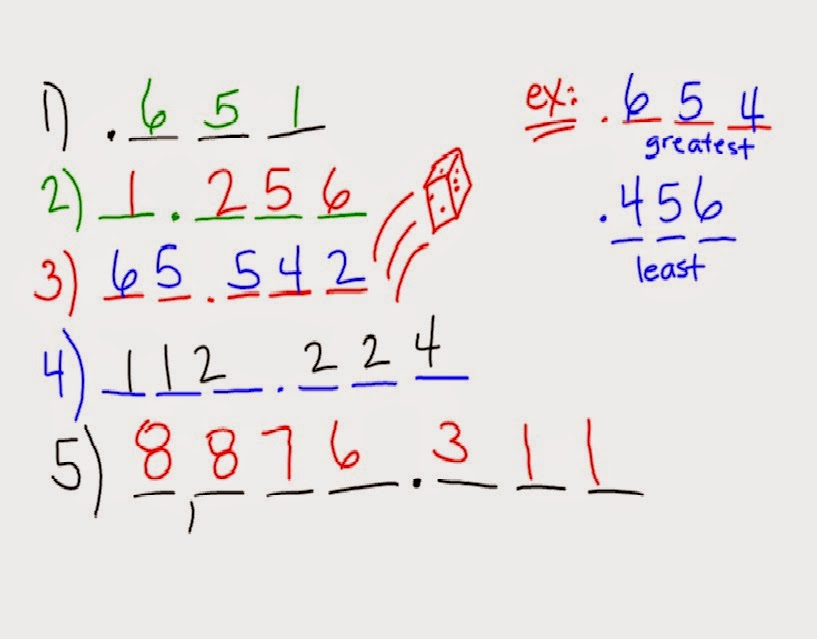 1) .651
2) 1.256
3) 65.542
4) 112.224
5) 8,876.311
ex: .654
greatest
.456
least